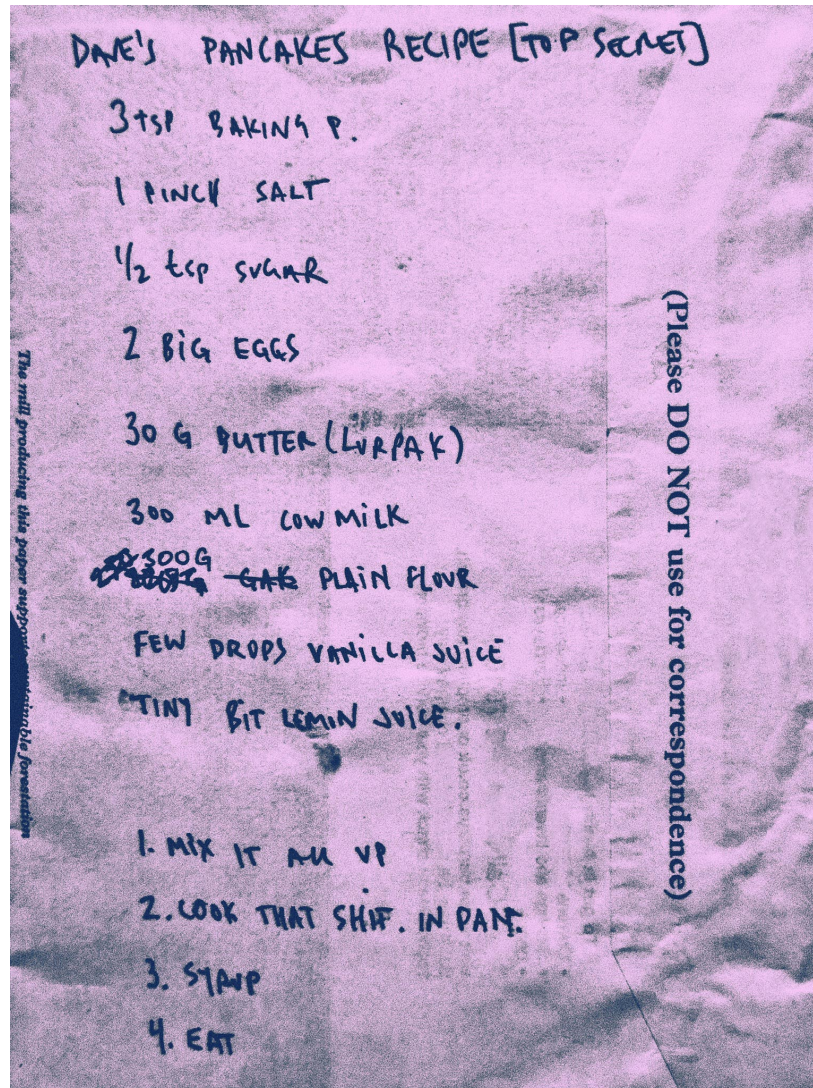 DAVE'S PANCAKES RECIPE [TOP SECRET]
3 tsp BAKING P.
1 PINCH SALT
1/2 tsp SUGAR
2 BiG EGGS
30 G BUTTER (LURPAK)
300 ML COW MiLK
300G GAK PLAiN FLOUR
FEW DROPS VANILLA JUICE
TINY BIT LEMIN JUICE.
1. MiX IT ALL UP
2. COOK THAT SHIT. IN PAN.
3. SYRUP
4. EAT
(Please DO NOT use for correspondence)
The mill producing this paper supports sustainable forestation